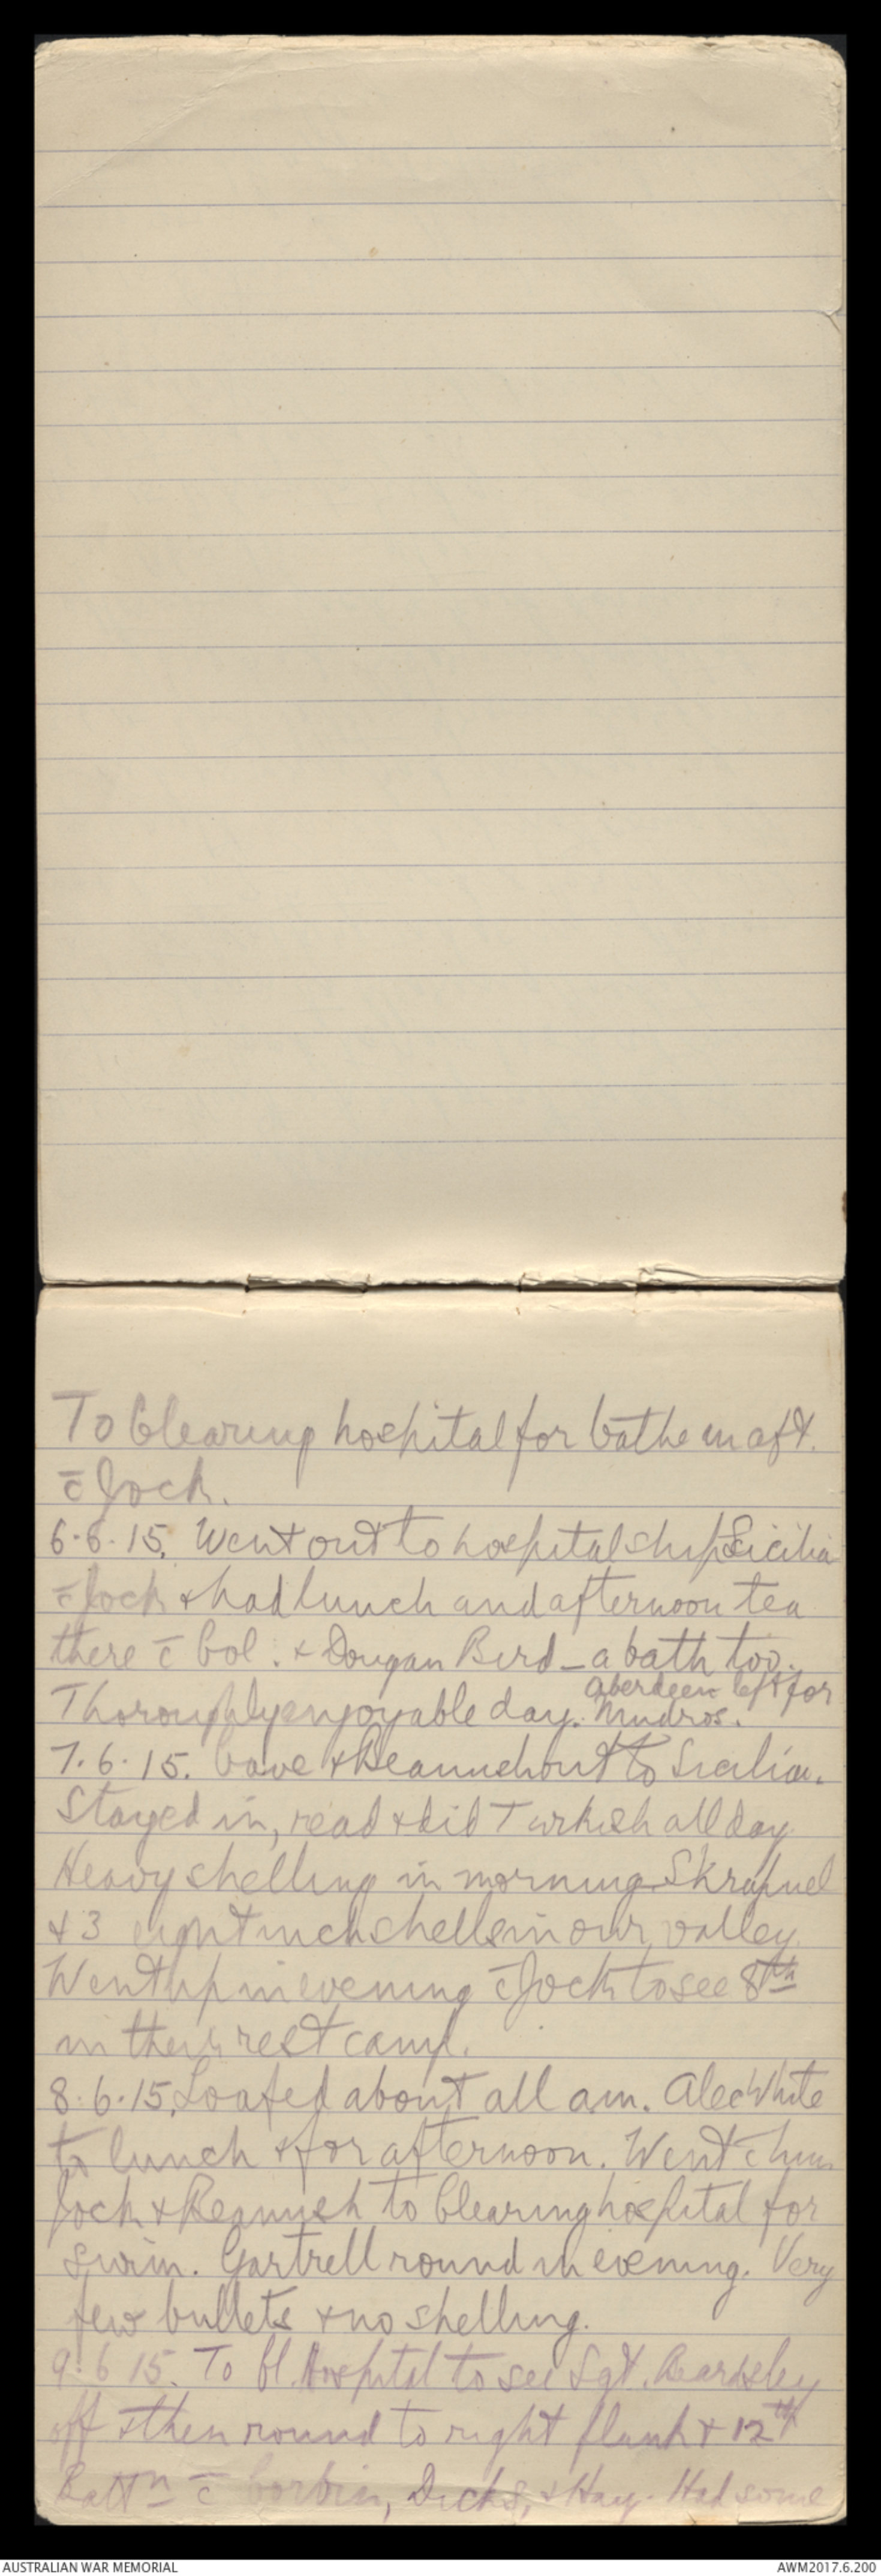 To Clearing hospital for bathe in aft.
c̄ Jock.
6.6.15. Went out to hospital ship Sicilia
c̄ Jock & had lunch and afternoon tea
there c̄ Col. & Dougan Bird _ a bath too.
Thoroughly enjoyable day. Aberdeen left for
Mudros.
7.6.15. Cave & Beamish out to Sicilia.
Stayed in, read & did Turkish all day.
Heavy shelling in morning Shrapnel
& 3 eight inch shells in our valley.
Went up in evening c̄ Jock to see 8th
in their rest camp.
8.6.15. Loafed about all am. Alec White
to lunch & for afternoon. Went c̄ him
Jock & Beamish to Clearing hospital for
swim. Gartrell round in evening. Very
few bullets & no shelling.
9.6.15. To Cl. Hospital to see Sgt. Beardsley
off & then round to right flank & 12th
Battn c̄ Corbin, Dicks, & Hay. Had some
AUSTRALIAN WAR MEMORIAL
AWM2017.6.200